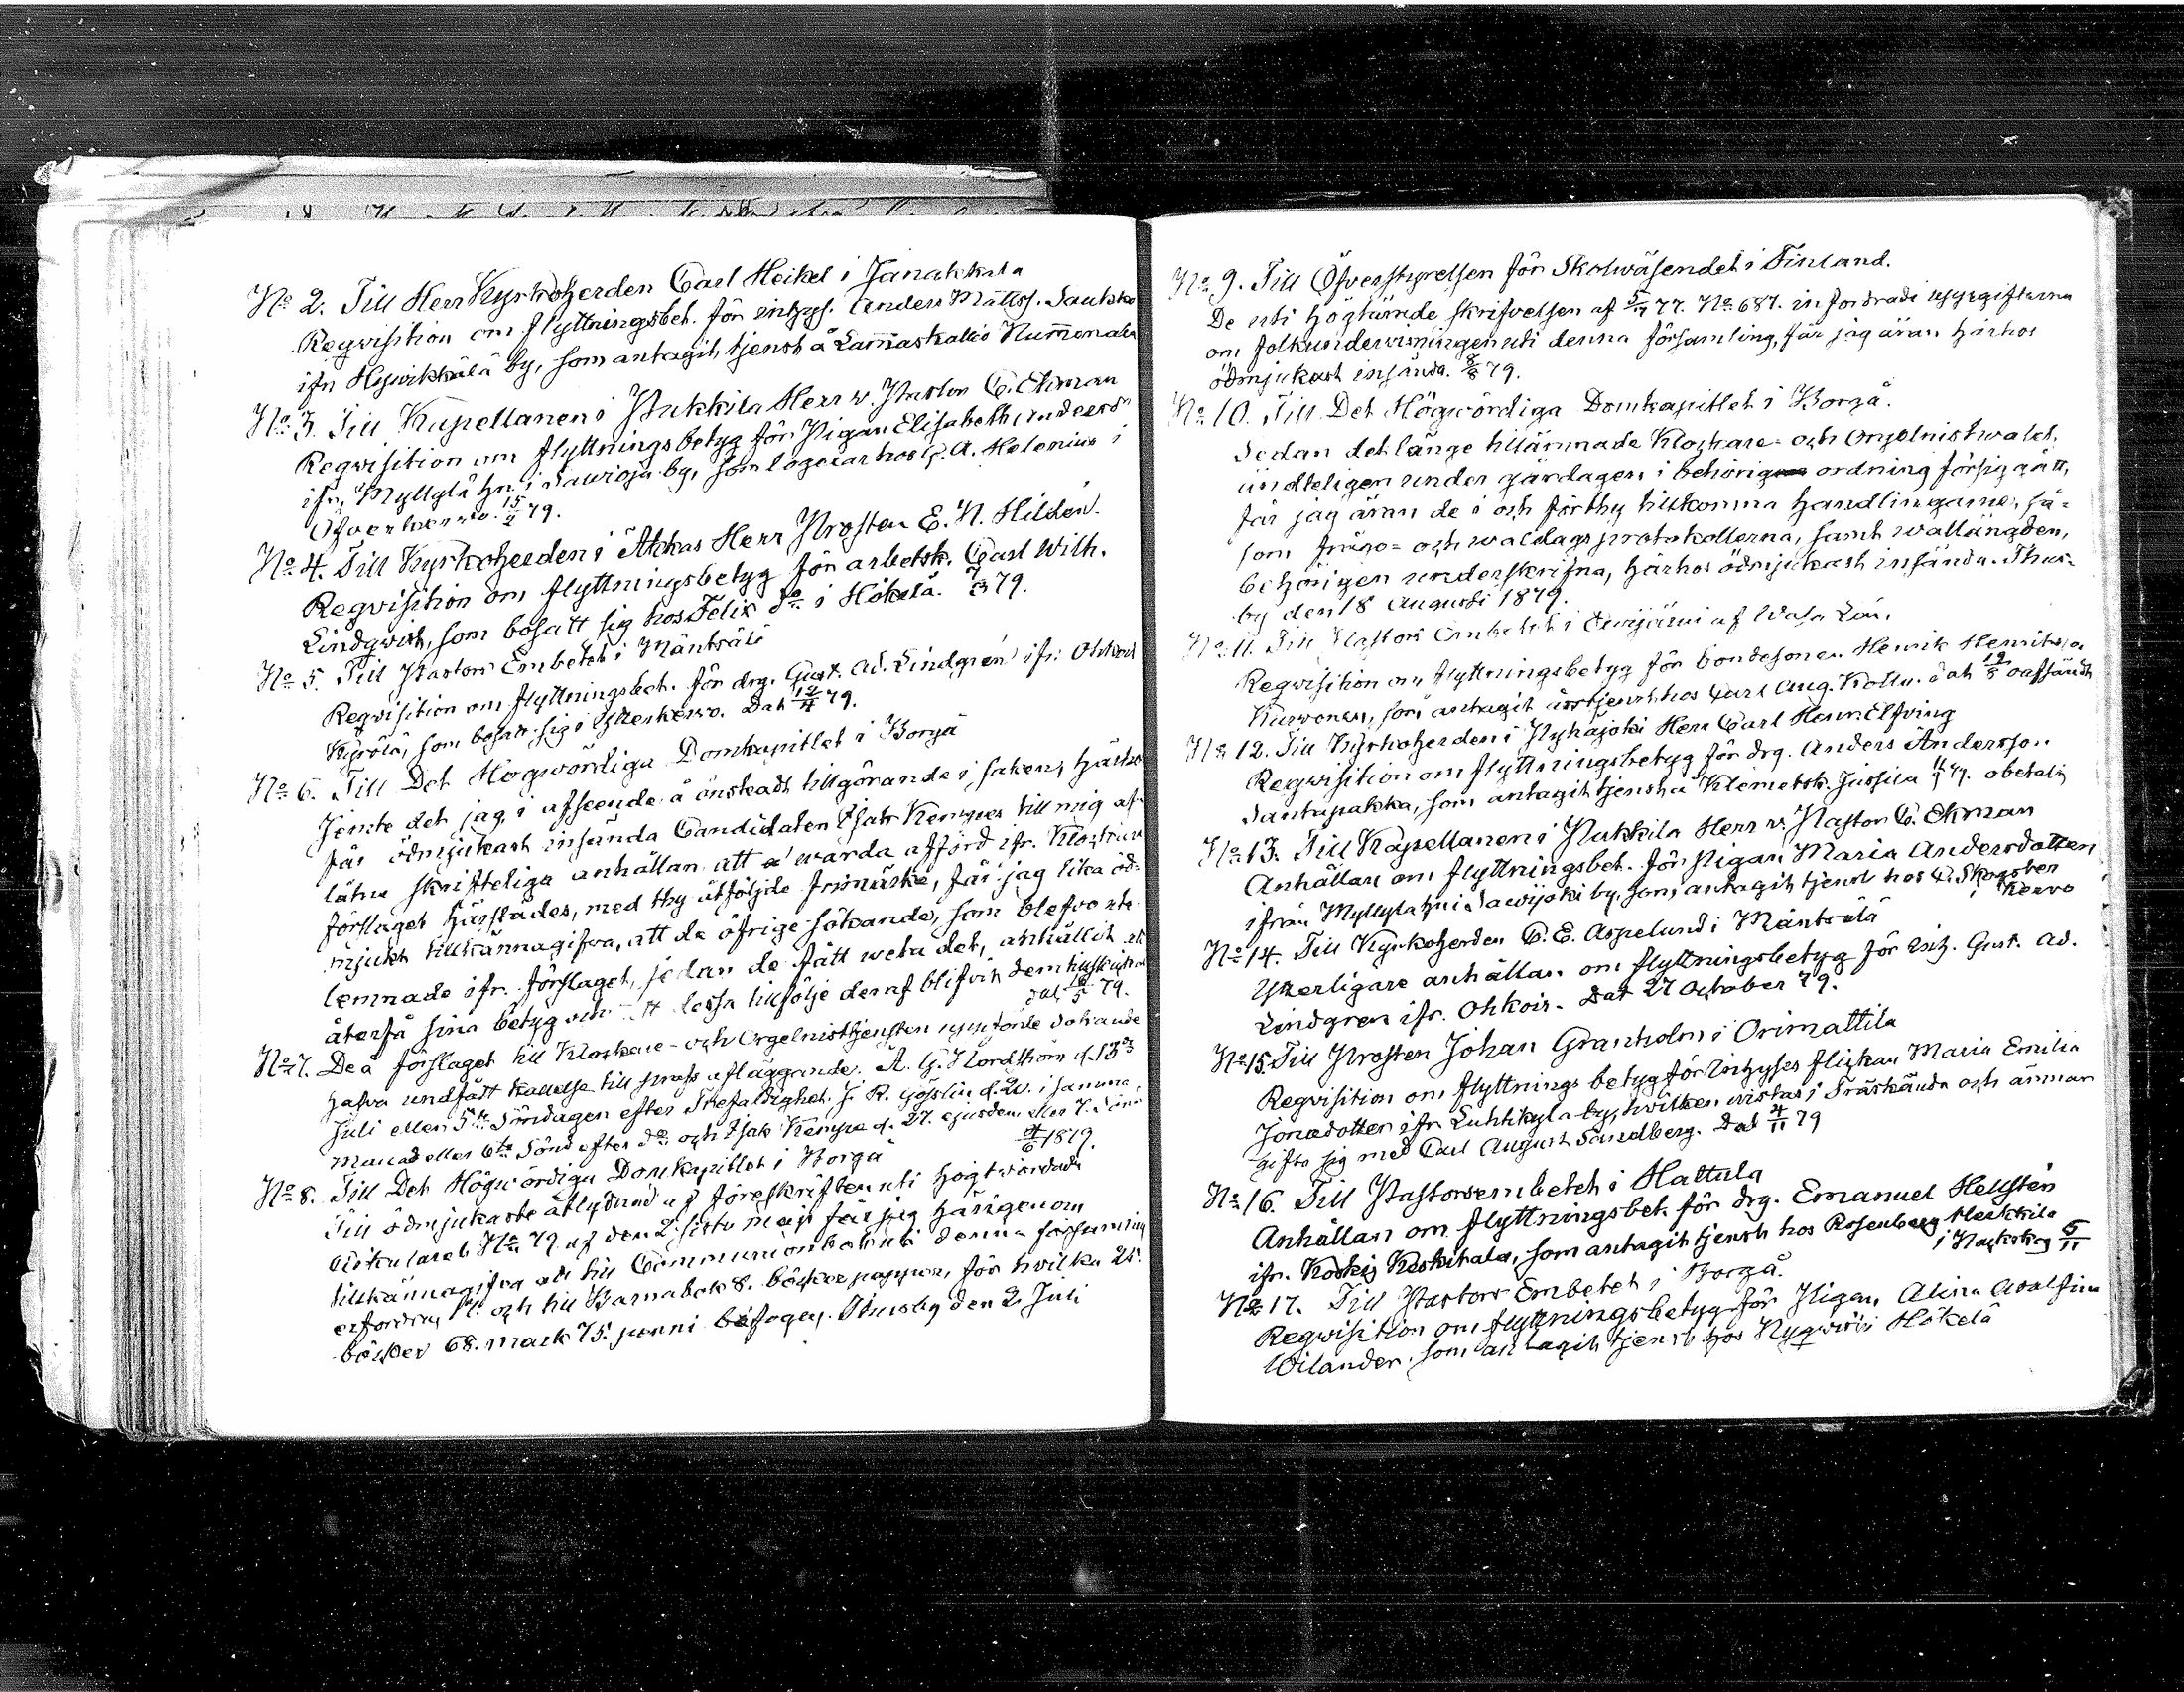 No 2. Till Herr Kyrkoherden Carl Heikel i Janakkala
Reqvisition om flyttningsbet. för inhys. Anders Mattss. Saukko
ifn Hyvikkälä by, som antagit tjenst å Lamaskallio Numenala
No 3. Till Kapellanen i Pukkila Herr v. Pastor C. Ekman
Reqvisition om flyttningsbetyg för Pigan Elisabeth Andersdr
ifr. Myllylä hn. i Sawioja by, som logerar hos G. A. Helenius i
15/2 79.
No 4. Till Kyrkoherden i Akkas Herr Prosten E. N. Hildén.
Reqvisition om flyttningsbetyg för arbetsk. Carl Wilh.
Lindqvist, som bosatt sig hos Felix do i Hökelä. 7/3 79.
No 5. Till Pastors Embetet i Mäntsälä
Reqvisition om flyttningsbet. för drg. Gust. Ad. Lindgrén ifr. Ohkois
Kyrölä, som bosatt sig i Ytterkervo. Dat 12/4 79.
No 6. Till Det Högwördiga Domkapitlet i Borgå
Jemte det jag, i afseende å önskadt tillgörande i saken, härhos
får ödmjukast insända Candidaten Isak Kempes till mig af-
låtna skriftliga anhållan att warda afförd ifr. Klockare
förslaget härstädes, med thy åtföljde frimärke, får jag lika öd-
mjukt tillkännagifva, att de öfrige sökande, som blefvo ute
lemnade ifr. förslaget, sedan de fått weta det, anhållit att
återfå sina betyg och att dessa tillfölje deraf blifvit dem tillskickade
dat 16/5 79.
No 7. De å förslaget till Klockare- och Orgelnisttjensten uppförde Sökande
hafva undfått kallelse till profs afläggande. A. G. Nordstrom d. 13de
Juli eller 5te Söndagen efter Trefaldighet. J. R. Gösslin d. 20. i samma
Månad eller 6te Sönd efter do och Isak Kempe d. 27. ejusdem eller 7. Sönd
4/6 1879.
No 8. Till Det Högwördiga Domkapitlet i Borgå
Till ödmjukaste åtlydnad af föreskriften uti högtwördade
Cirkuläret No 79 af den 21 sistl. maji får jag härigenom
tillkännagifva att till Communionbok uti denna församling
erfordras 17. och till Barnabok 8. böcker papper, för hvilka 25.
böcker 68. mark 75. penni bifogas. Thusby den 2 Juli
No 9. Till Öfverstyrelsen för Skolwäsendet i Finland.
De uti högtärade skrifvelsen af 5/7 77. No 687. infordrade uppgifterna
om folkundervisningen uti denna församling, får jag äran härhos
ödmjukast insända. 8/8 79.
No 10. Till Det Högwördiga Domkapitlet i Borgå.
Sedan det länge tillämnade Klockare- och Orgelnistwalet.
ändteligen under gårdagen i behörig ordning försiggått,
får jag äran de i och för thy tillkomna handlingarne, så-
som frågo- och waldagsprotokollerna, samt wallängden,
behörigen underskrifna, härhos ödmjukast insända. Thus-
by den 18 Augusti 1879.
No 11. Till Pastors Embetet i Ewijärvi af Wasa Län.
Reqvisition om flyttningsbetyg för bondesonen Henrik Henriksson
Kurvonen, som antagit årstjenst hos Carl Aug. dat 19/8 oafsändt
No 12. Till Kyrkoherden i Pyhäjoki Herr Carl Henr. Elfving
Reqvisition om flyttningsbetyg för drg. Anders Andersson
Santapakka, som antagit tjenst å Klemetsk. Jussila 11/9 79. obetalt
No 13. Till Kapellanen i Pukkila Herr v. Pastor C. Ekman
Anhållan om flyttningsbet. för pigan Maria Andersdotter
ifrån Myllylä hn i Sawijoki by, som antagit tjenst hos C. Skogster
i Kervo
No 14. Till Kyrkoherden C. E. Aspelund i Mäntsälä
Ytterligare anhållan om flyttningsbetyg för inh. Gust. Ad.
Lindgren ifr. Ohkois. Dat 27 October 79.
No 15. Till Prosten Johan Granholm i Orimattila
Reqvisition om flyttnings betyg för Inhyses flickan Maria Emilia
Jonadotter ifr Luhtikylä by, hvilken vistas i Träskända och ämnar
gifta sig med Carl August Sandberg. Dat 4/11 79
No 16. Till Pastorsembetet i Hattula
Anhållan om flyttningsbet. för drg. Emanuel Hellstén
ifr. Koskis Keskitalo, som antagit tjenst hos Rosenberg Heikkilä
i Nackskog 5/11
No 17. Till Pastors Embetet i Borgå.
Reqvisition om flyttningsbetyg för Pigan, Alina Adolfina
Wilander, som antagit tjenst hos Nyqvist i Hökelä